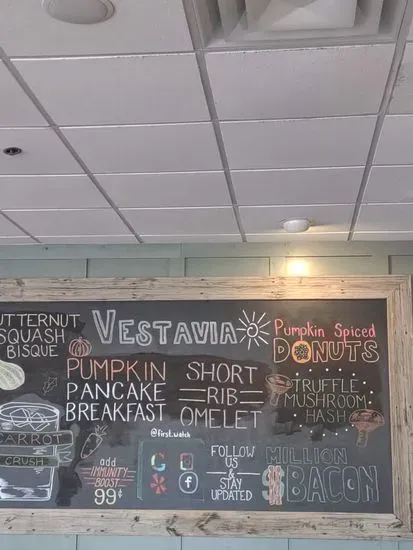 VESTAVIA
UTTERNUT
SQUASH
BISQUE
PUMPKIN
PANCAKE
BREAKFAST
SHORT
RIB
OMELET
Pumpkin Spiced
DONUTS
TRUFFLE
MUSHROOM
HASH
CARROT
CRUSH
add
IMMUNITY
BOOST
99¢
@first.watch
G
f
FOLLOW
US
&
STAY
UPDATED
MILLION
$ BACON